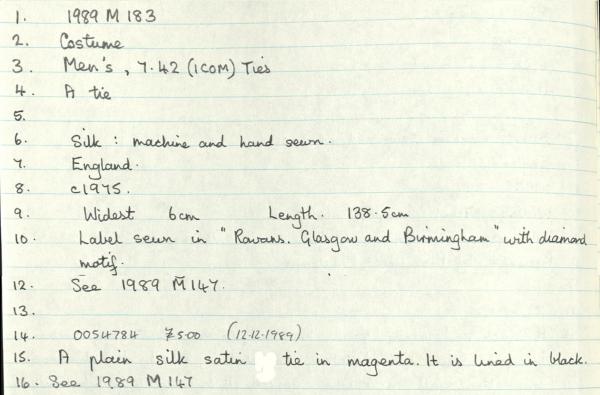 1. 1989 M 183
2. Costume
3. Men's, 7.42 (ICOM) Ties
4. A tie
5.
6. Silk : machine and hand sewn.
7. England.
8. c1975.
9. Widest 6cm Length. 138.5cm
10. Label sewn in "Rowans. Glasgow and Birmingham" with diamond
motif.
12. See 1989 M 147.
13.
14. 0054784 £5.00 (12.12.1989)
15. A plain silk satin tie in magenta. It is lined in black.
16. See 1989 M 147